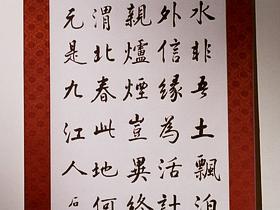 水非吾土飄泊
外信緣為活計
親爐煙豈異終
渭北春此地何
元是九江人